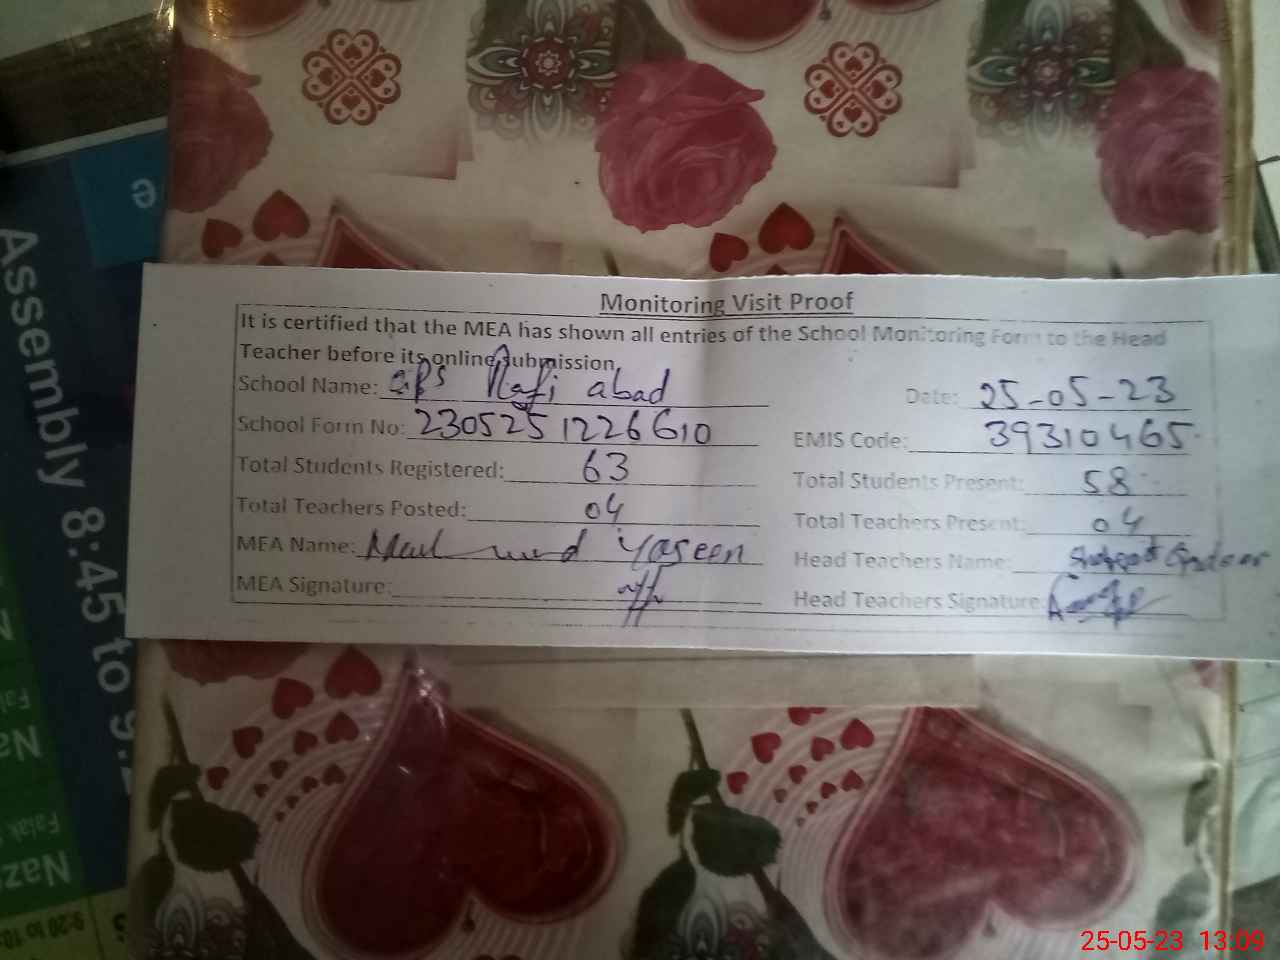 Assembly 8:45 to 9:
Monitoring Visit Proof
It is certified that the MEA has shown all entries of the School Monitoring Form to the Head
Teacher before its online submission
School Name: GPS Rafi abad
Date: 25-05-23
School Form No: 230525 1226610
EMIS Code: 39310465
Total Students Registered: 63
Total Students Present: 58
Total Teachers Posted: 04
Total Teachers Present: 04
MEA Name: Mahmood Yaseen
Head Teachers Name:
MEA Signature:
Head Teachers Signature:
Naz
9:20 to 10
25-05-23 13:09